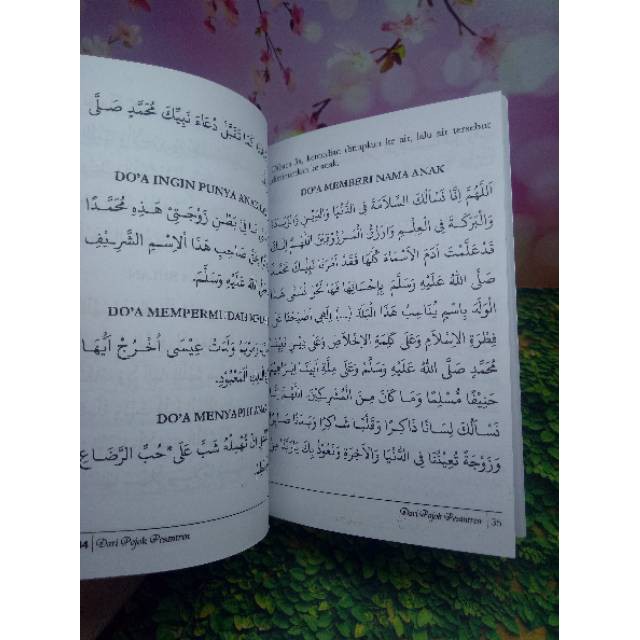 كَمَا تَقَبَّلَ دُعَاءَ نَبِيِّكَ مُحَمَّدٍ صَلَّى
DO'A INGIN PUNYA
فِى بَطْنِ زَوْجَتِىْ هَذِهِ مُحَمَّدًا
صَاحِبِ هَذَا الْاِسْمِ الشَّرِيْفِ
اللهُ عَلَيْهِ وَسَلَّمَ.
DO'A MEMPERMUDAH
وَمَرْيَمُ وَلَدَتْ عِيْسَى اُخْرُجْ اَيُّهَا
الْمَعْبُوْدِ.
DO'A MENYAPIH
اِنْ تُهْمِلْهُ شَبَّ عَلَى حُبِّ الرَّضَاعِ
Dari Pojok Pesantren
Dibaca 3x, kemudian ditiupkan ke air, lalu air tersebut
diminumkan ke anak.
DO'A MEMBERI NAMA ANAK
اَللّٰهُمَّ اِنَّا نَسْأَلُكَ السَّلَامَةَ فِى الدُّنْيَا وَالدِّيْنِ وَالزِّيَادَةَ
وَالْبَرَكَةَ فِى الْعِلْمِ وَارْزُقْ الْمَرْزُوْقِيْنَ اَللّٰهُمَّ اِنَّكَ
قَدْ عَلَّمْتَ اٰدَمَ الْاَسْمَاءَ كُلَّهَا فَقَدْ اَمَرْتَ نَبِيَّكَ مُحَمَّدًا
صَلَّى اللهُ عَلَيْهِ وَسَلَّمَ بِاِحْسَانِهَا فَهَا نَحْنُ نُسَمِّى هَذَا
الْوَلَدَ بِاِسْمٍ يُنَاسِبُ هَذَا الْبَلَدَ (...) اِلٰهِى اَصْبَحْنَا عَلَى
فِطْرَةِ الْاِسْلَامِ وَعَلَى كَلِمَةِ الْاِخْلَاصِ وَعَلَى دِيْنِ نَبِيِّنَا
مُحَمَّدٍ صَلَّى اللهُ عَلَيْهِ وَسَلَّمَ وَعَلَى مِلَّةِ اَبِيْنَا اِبْرَاهِيْمَ
حَنِيْفًا مُسْلِمًا وَمَا كَانَ مِنَ الْمُشْرِكِيْنَ. اَللّٰهُمَّ اِنَّا
نَسْأَلُكَ لِسَانًا ذَاكِرًا وَقَلْبًا شَاكِرًا وَبَدَنًا صَابِرًا
وَزَوْجَةً تُعِيْنُنَا فِى الدُّنْيَا وَالْاٰخِرَةِ وَنَعُوْذُ بِكَ يَارَبَّنَا مِنْ
Dari Pojok Pesantren | 35